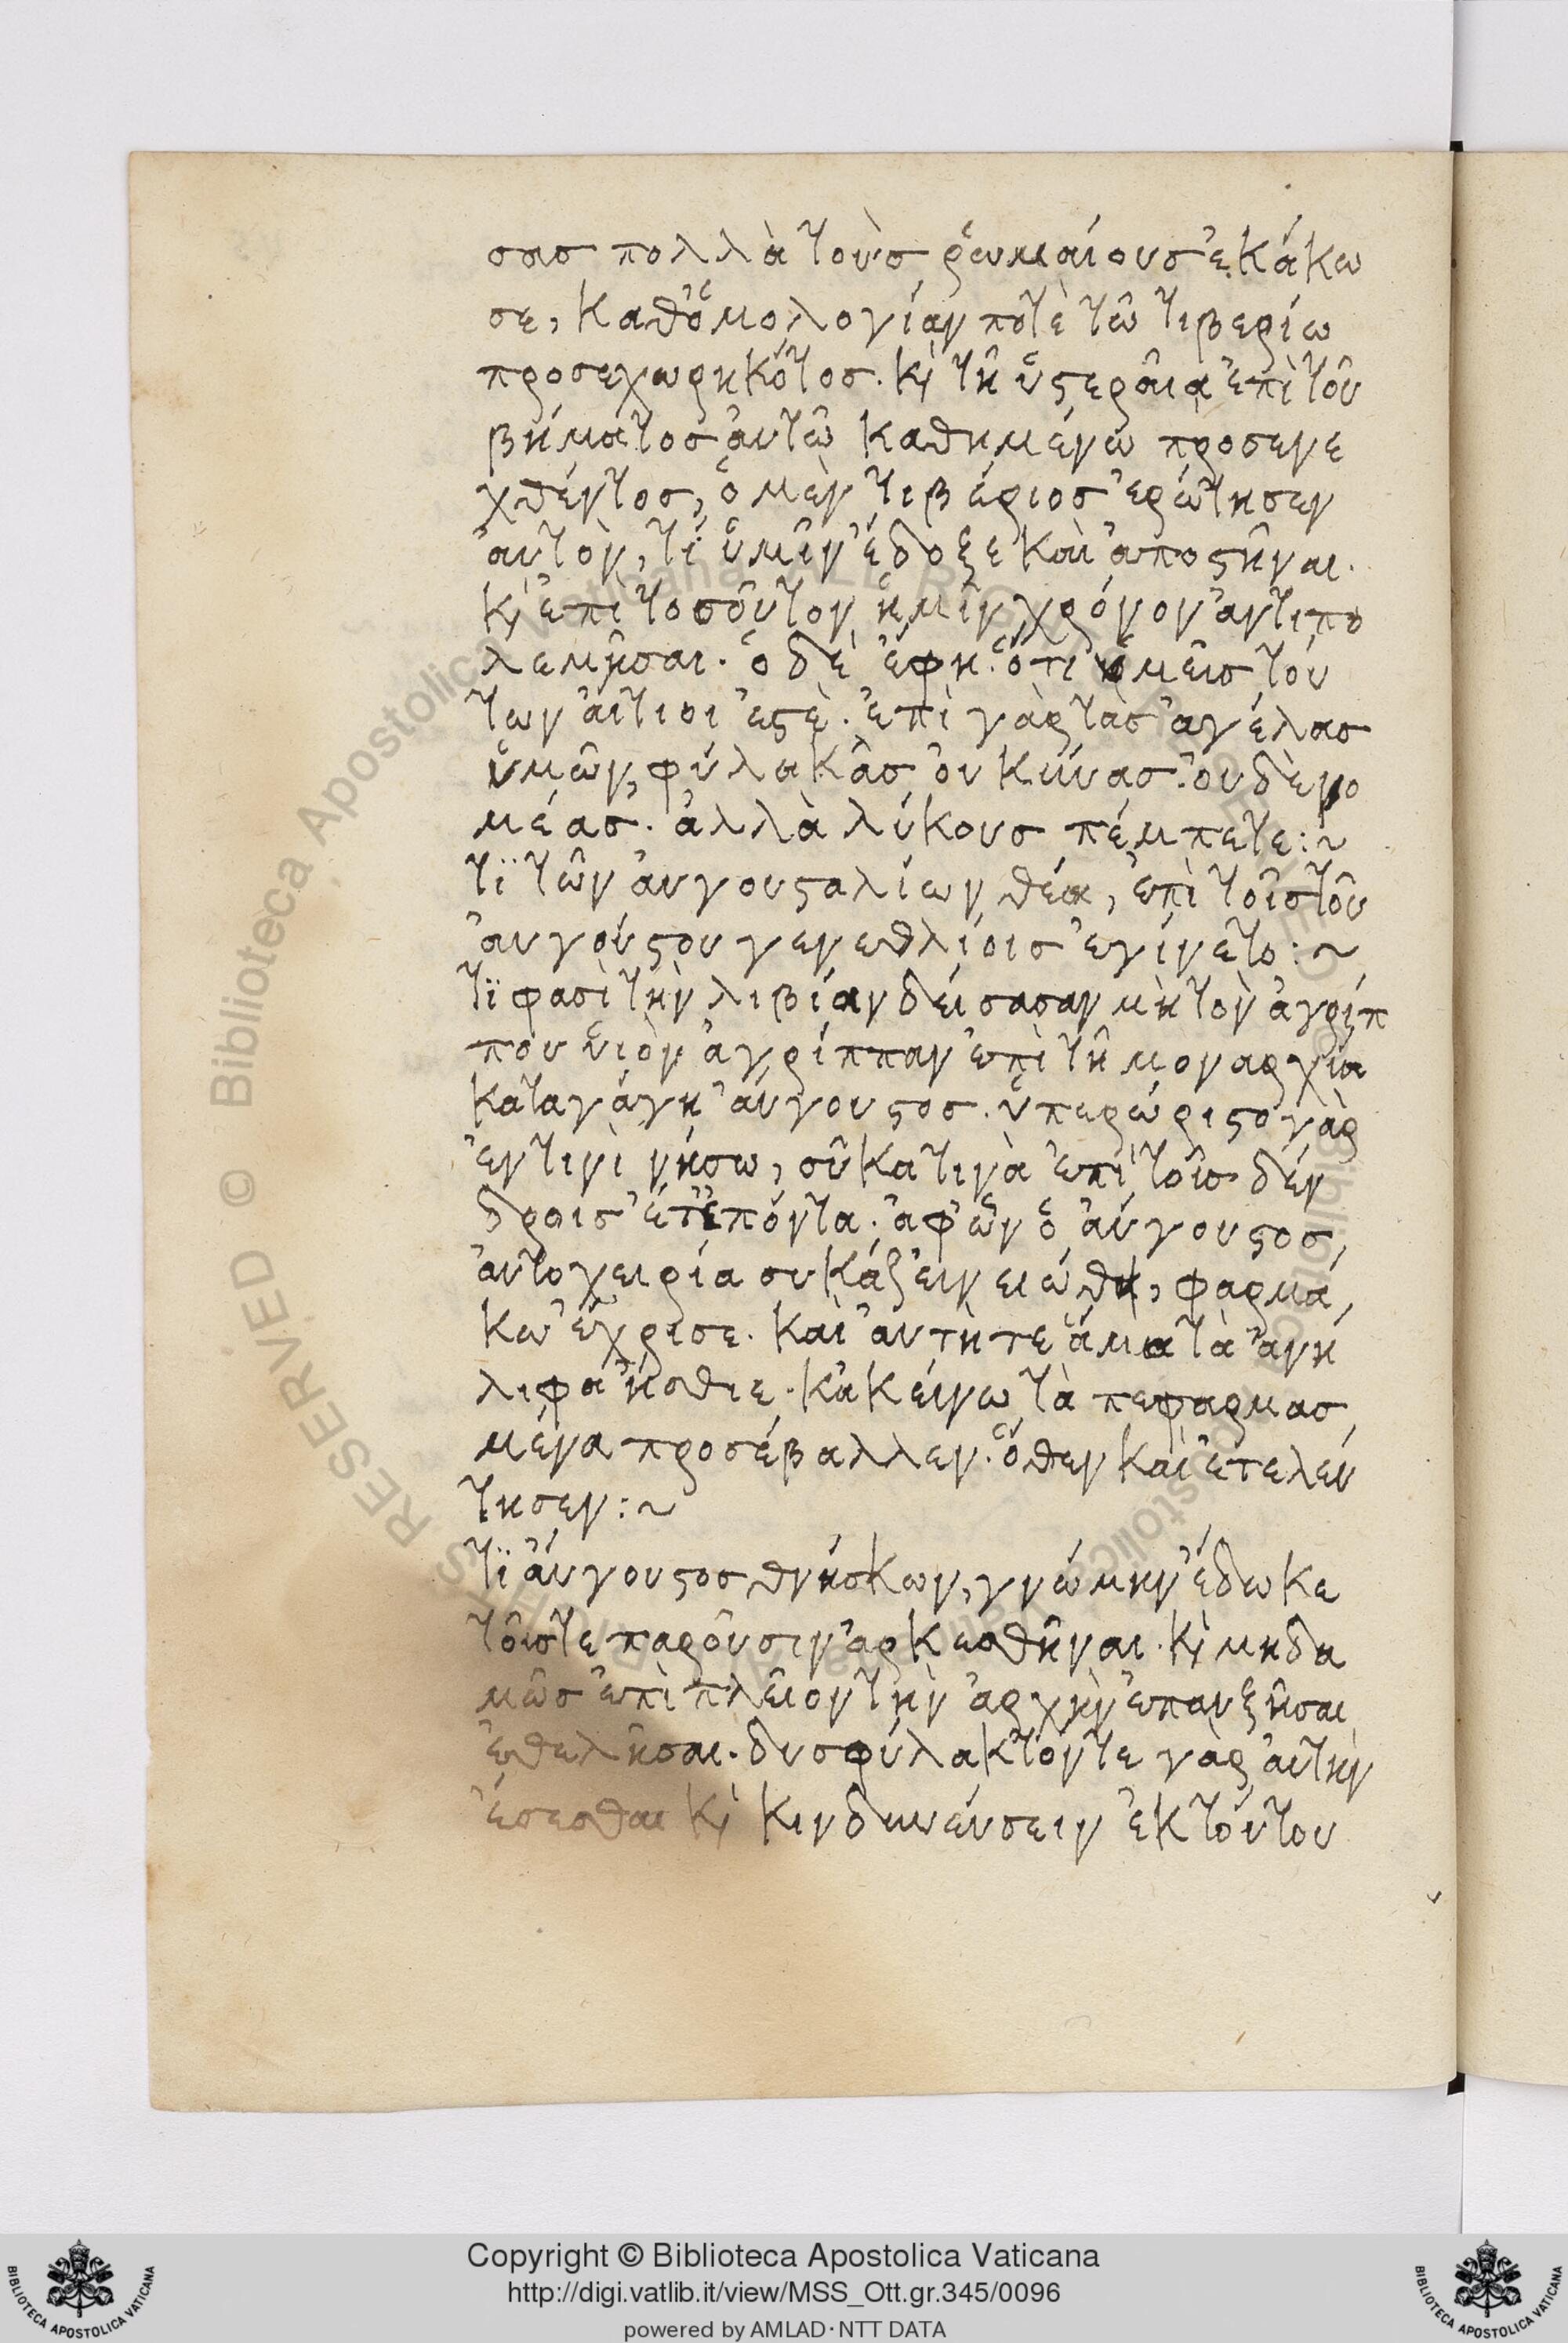 σας πολλὰ τοὺς ῥωμαίους ἐκάκω
σε, καθ' ὁμολογίαν ποτὲ τῶ τιβερίω
προσεχωρηκότος. κ̀ τῆ ὑστεραῖα ἐπὶ τοῦ
βήματος ἀυτῶ καθημένω προσενε
χθέντος, ὁ μὲν τιβέριος ἐρώτησεν
ἀυτὸν, τί ὑμῖν ἔδοξε καὶ ἀποστῆναι.
κ̀ ἐπὶ τοσοῦτον ἡμῖν χρόνον ἀντιπο
λεμῆσαι. ὁ δὲ ἔφη. ὅτι ὑμεῖς τού
των ἀίτιοι ἐστὲ. ἐπὶ γὰρ τὰς ἀγέλας
ὑμῶν, φύλακας ὀυ κύνας. ὀυδὲ νο
μέας. ἀλλὰ λύκους πέμπετε:~
τϊ τῶν ἀυγουσταλίων θέα, ἐπὶ τοῖς τοῦ
ἀυγούστου γενεθλίοις ἐγίνετο:~
τϊ φασὶ τὴν λιβίαν δείσασαν μὴ τὸν ἀγρίπ
που ὑιὸν ἀγρίππαν ἐπὶ τῆ μοναρχία
καταγάγη ἀύγουστος. ὑπερώριστο γὰρ
ἐν τινὶ νήσω, σῦκα τινὰ ἐπὶ τοῖς δέν
δροις ἔτι ἐπόντα. ἀφ' ὧν ὁ ἀύγουστος,
ἀυτοχειρία συκάζειν ειώθη, φαρμά,
κω ἔχρισε. καὶ ἀυτὴ τε ἅμα τὰ ἀνή
λιφα ἤσθιε. κἀκείνω τὰ πεφαρμασ
μένα προσέβαλλεν. ὅθεν καὶ ἐτελεύ
τησεν:~
τϊ ἀύγουστος θνήσκων, γνώμην ἔδωκε
τοῖς τε παροῦσιν ἀρκεσθῆναι. κ̀ μηδα
μῶς ἐπὶ πλεῖον τὴν ἀρχὴν ἐπαυξῆσαι
ἐθελῆσαι. δυσφύλακτόν τε γὰρ ἀυτὴν
ἔσεσθαι κ̀ κινδυνεύσειν ἐκ τούτου
Copyright © Biblioteca Apostolica Vaticana
http://digi.vatlib.it/view/MSS_Ott.gr.345/0096
powered by AMLAD·NTT DATA